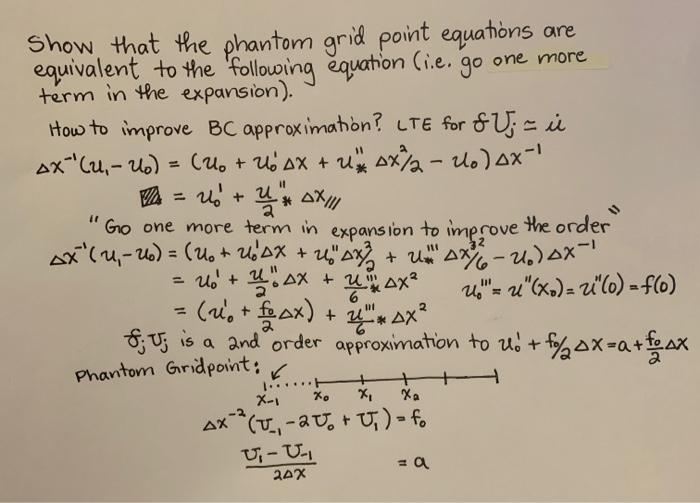 Show that the phantom grid point equations are
equivalent to the following equation (i.e. go one more
term in the expansion).
How to improve BC approximation? LTE for δUⱼ ≃ u̇
Δx⁻¹(u₁-u₀) = (u₀ + u₀'Δx + u''* Δx²/2 - u₀)Δx⁻¹
= u₀' + u''*/2 Δx///
"Go one more term in expansion to improve the order"
Δx⁻¹(u₁-u₀) = (u₀ + u₀'Δx + u₀''Δx²/2 + u*''' Δx³/6 - u₀)Δx⁻¹
= u₀' + u₀''/2 Δx + u'''*/6 Δx² u₀''' = u''(x₀) = u''(0) = f(0)
= (u₀' + f₀/2 Δx) + u'''*/6 Δx²
δⱼUⱼ is a 2nd order approximation to u₀' + f₀/2 Δx = a + f₀/2 Δx
Phantom Gridpoint:
x₋₁ x₀ x₁ x₂
Δx⁻²(U₋₁ - 2U₀ + U₁) = f₀
U₁ - U₋₁ / 2Δx = a